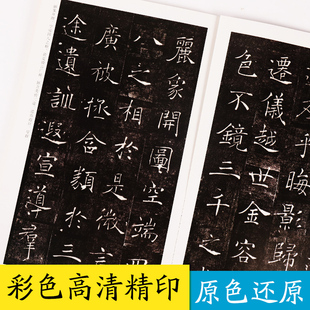 乎晦影歸
遷儀越世金容
色不鏡三千之
麗象開圖空端四
八之相於是微言
廣被拯含類於三
途遺訓遐宣導羣
彩色高清精印
原色还原